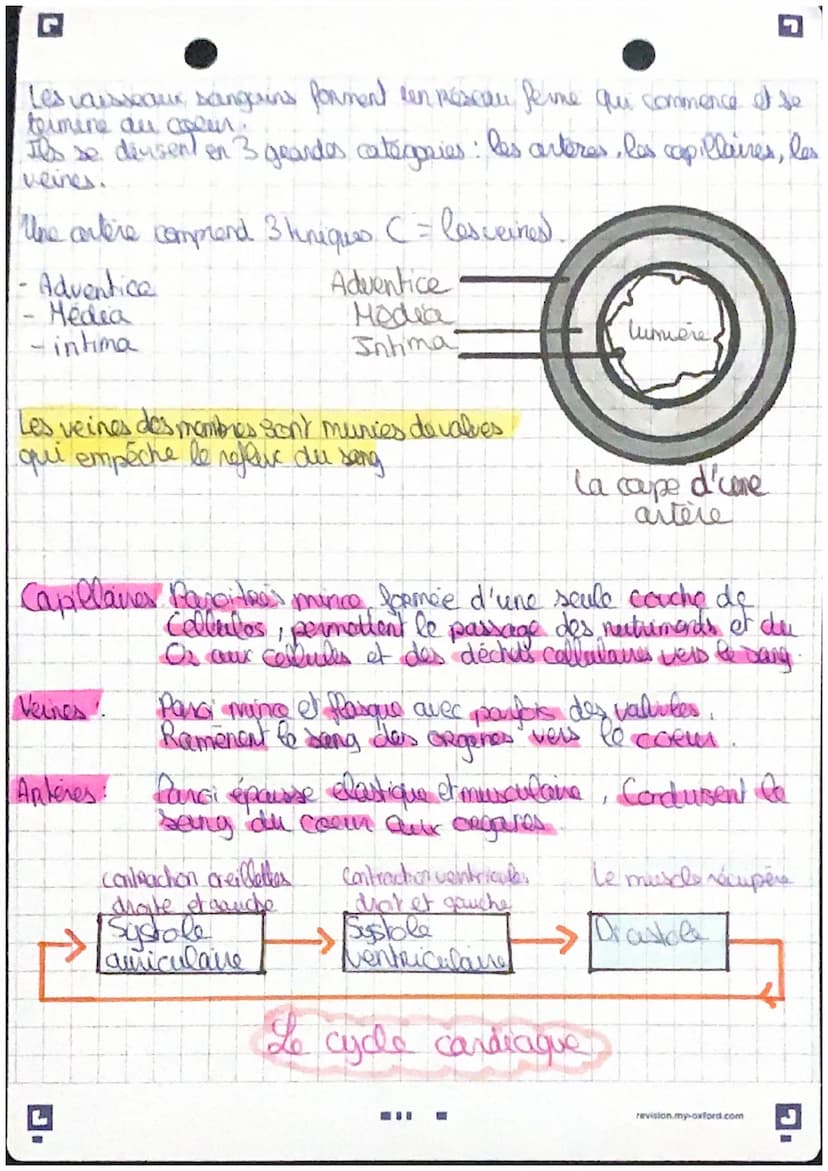 Les vaisseaux sanguins forment un réseau fermé qui commence et se
termine au coeur.
Ils se divisent en 3 grandes catégories : les artères, les capillaires, les
veines.
Une artère comprend 3 tuniques (= les veines).
- Adventice
- Média
- intima
Adventice
Média
Intima
lumière
Les veines des membres sont munies de valves
qui empêche le reflux du sang
La coupe d'une
artère
Capillaires Paroi très mince, formée d'une seule couche de
Cellules, permettent le passage des nutriments et du
O2 aux cellules et des déchets cellulaires vers le sang.
Veines : Paroi mince et flasque avec parfois des valvules.
Ramènent le sang des organes vers le coeur.
Artères : Paroi épaisse élastique et musculaire, Conduisent le
sang du coeur aux organes.
contraction oreillettes
droite et gauche
Contraction ventricules
droit et gauche
Le muscle récupère
Systole
auriculaire
Systole
ventriculaire
Diastole
Le cycle cardiaque
revision.my-oxford.com